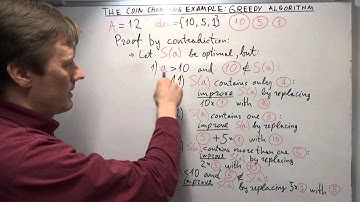 THE COIN CHANGING EXAMPLE: GREEDY ALGORITHM
A = 12 = {10, 5, 1} 10 5 1
Proof by contradiction:
→ Let S(a) be optimal, but:
1) a > 10 and 10 ∉ S(a):
1) S(a) contains only 1:
improve S(a) by replacing
10x 1 with 10
S(a) contains one 5:
improve S(a) by replacing
5 + 5x 1 with 10
S(a) contains more than one 5:
improve S(a) by replacing
2x 5 with 10
<10 and 5 ∉ S(a):
improve S(a) by replacing 5x 1 with 5